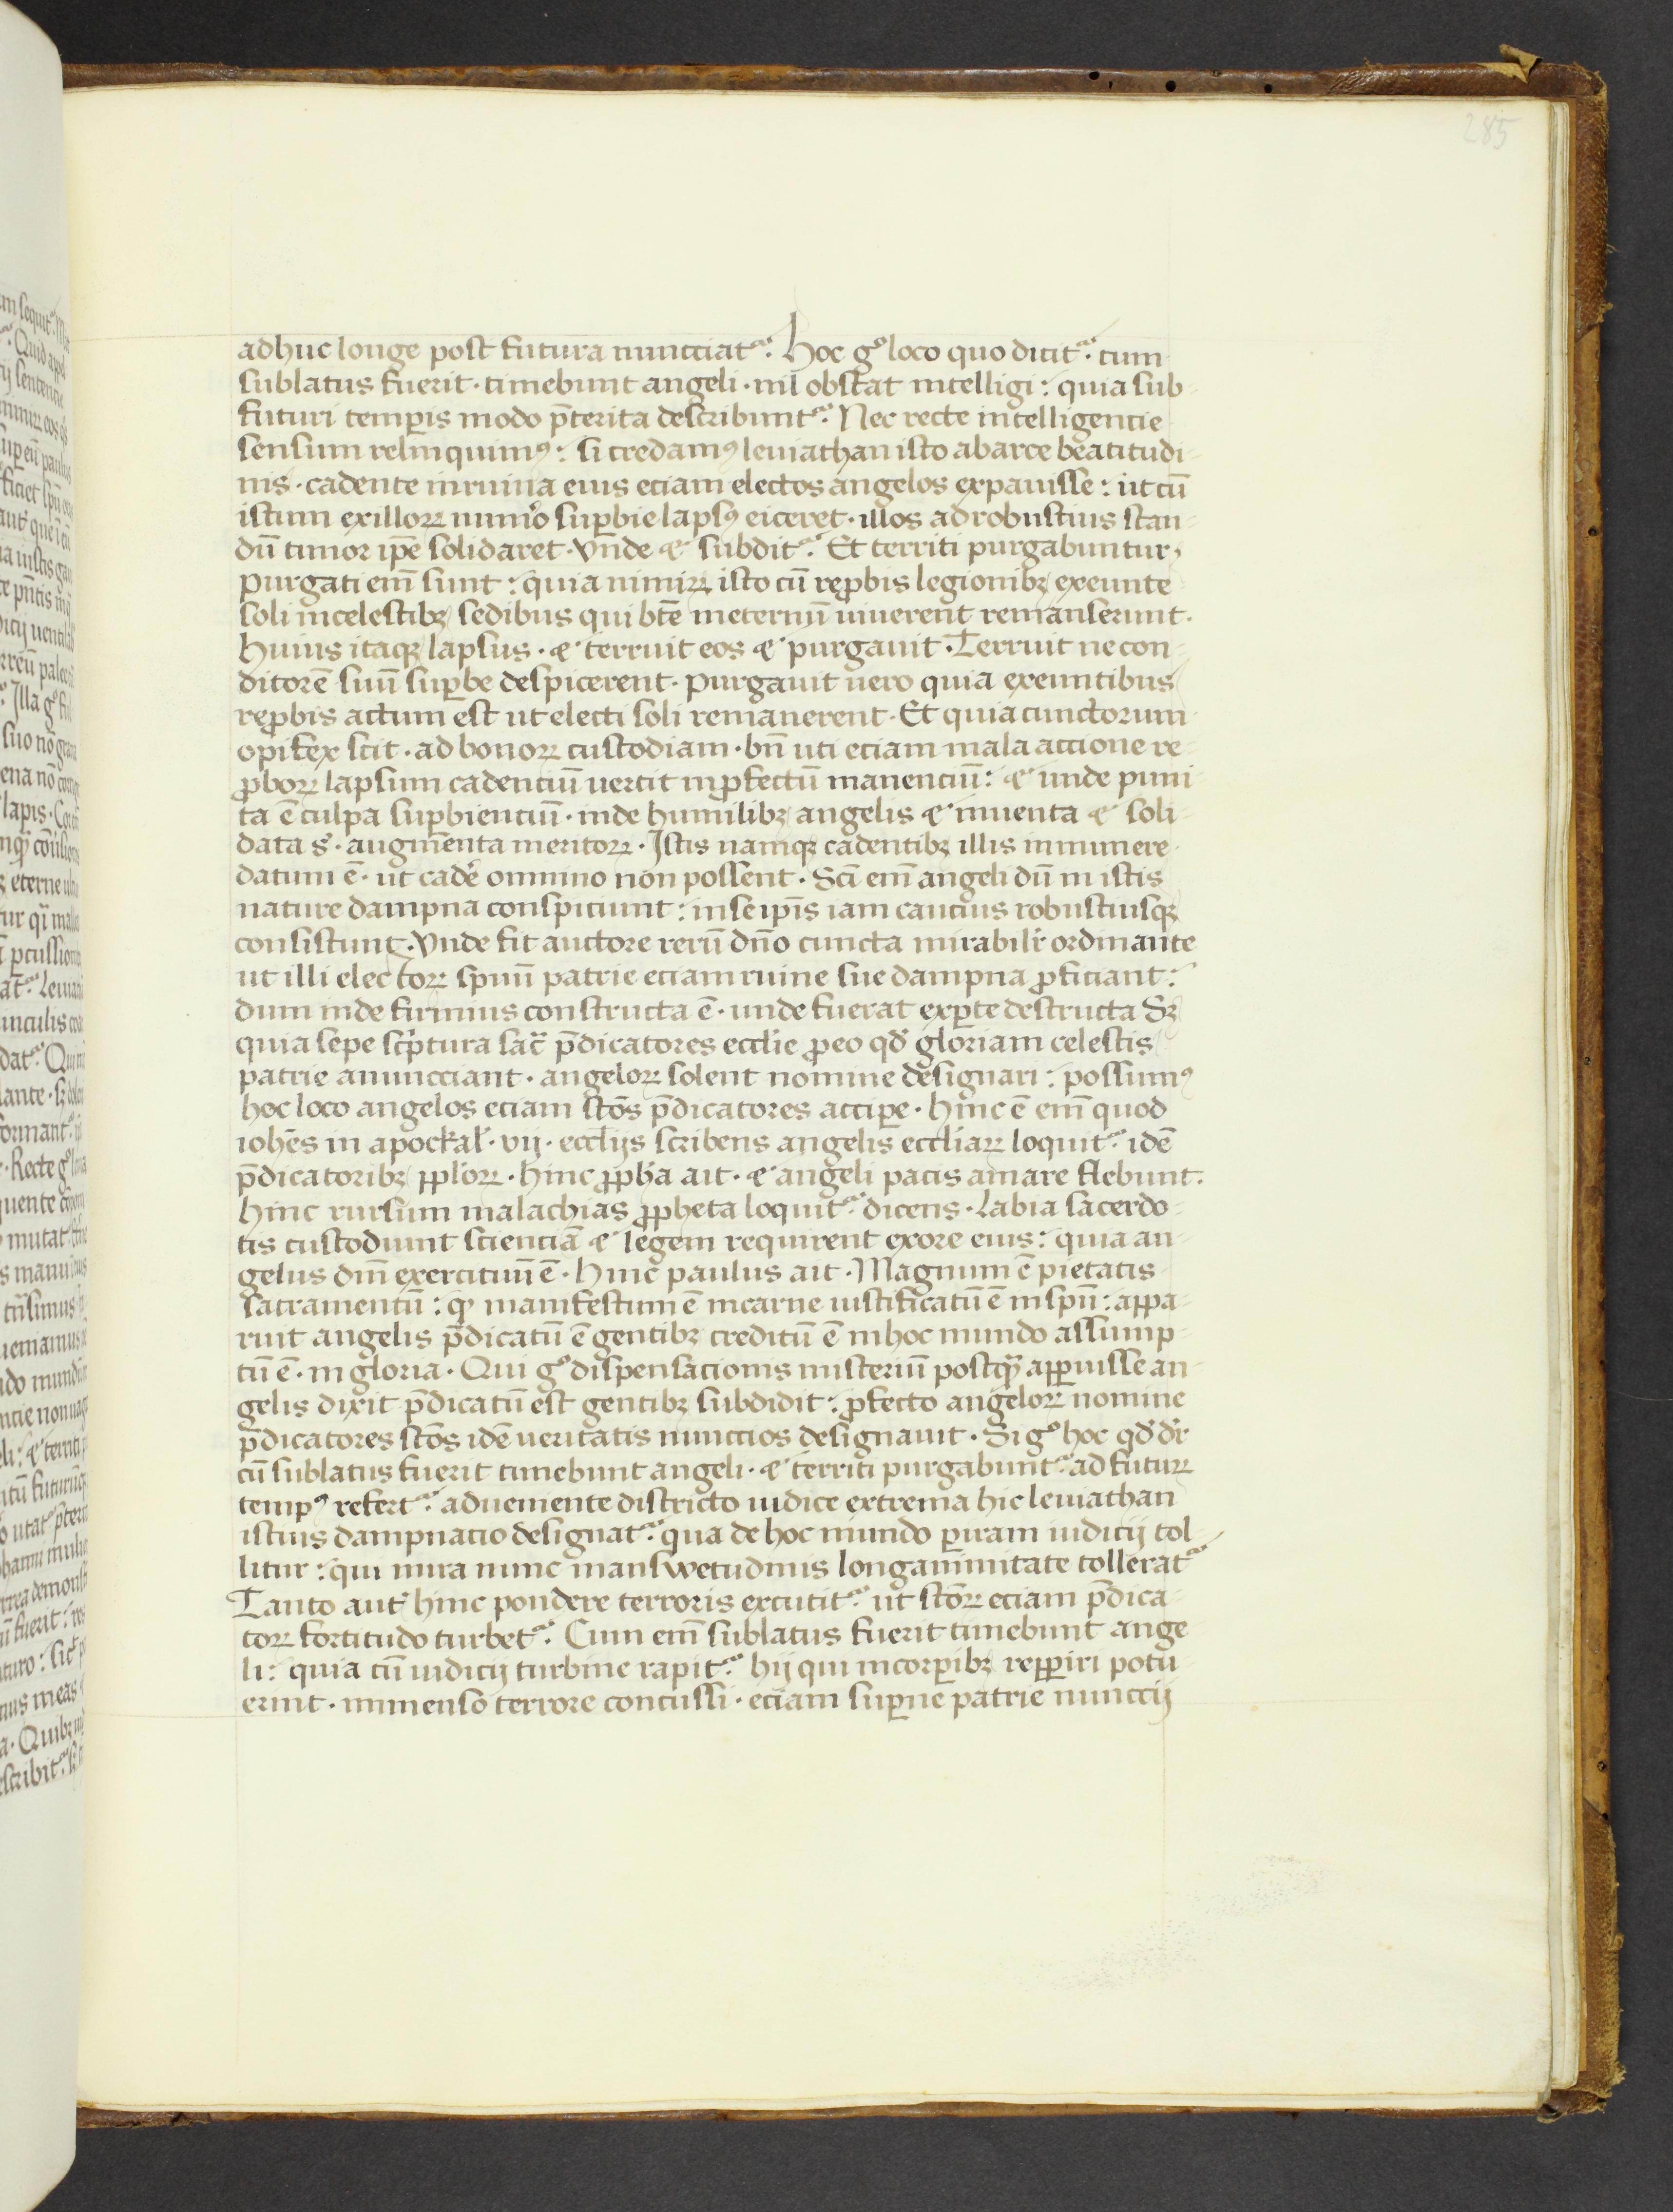 285
adhuc longe post futura nuncciat᷑. Hoc gͦ loco quo dicit᷑. cum
sublatus fuerit · timebunt angeli · nil obstat intelligi : quia sub
futuri temp̲is modo p̄terita describunt᷑. Nec recte intelligencie
sensum relinquimꝰ : si credamꝰ leuiathan isto abarce beatitudi
nis · cadente inruina eius eciam electos angelos expauisse : ut cū
istum exilloꝝ num̄o suꝑbie lapsꝰ eiceret · illos adrobustius stan
dū timor ip̄e solidaret · Vnde et subdit᷑. Et territi purgabuntur,
purgati em̄ sunt : quia nimiꝝ isto cū reꝓbis legionibꝫ exeunte
soli incelestibꝫ sedibus qui bt̄e ineternū uiuerent remanserunt.
Huius itaqꝫ lapsus · et terruit eos et purgauit · Terruit ne con
ditorē suū suꝑbe despicerent · purgauit uero quia exeuntibus
reꝓbis actum est ut electi soli remanerent · Et quia cunctorum
opifex scit · ad bonoꝝ custodiam · bn̄ uti eciam mala accione re
ꝓboꝝ lapsum cadenciū uertit inꝓfectū manenciū : et unde puni
ta ē culpa suꝑbienciū · inde humilibꝫ angelis et inuenta et soli
data s̄ · augm̄enta meritoꝝ · Istis namqꝫ cadentibꝫ illis inmunere
datum ē · ut cad̄e omnino non possent · Sc̄i em̄ angeli dū in istis
nature dampna conspiciunt : inseip̄is iam caucius robustiusqꝫ
consistunt · Vnde fit auctore rerū dn̄o cuncta mirabilit᷑ ordinante
ut illi electoꝝ spiritū patrie eciam ruine sue dampna ꝓficiant :
dum inde firmius constructa ē · unde fuerat exꝑte destructa Sꝫ
quia sepe sc̄ptura sac̄ p̄dicatores eccl̄ie ꝓeo qd̄ gloriam celestis
patrie anuncciant · angeloꝝ solent nomine designari : possumꝰ
hoc loco angelos eciam sc̄os p̄dicatores acciꝑe · Hinc ē em̄ quod
ioh̄es in apockal̄ · vij · eccl̄ijs scribens angelis eccl̄iaꝝ loquit᷑ idē
p̄dicatoribꝫ ppl̄oꝝ · Hinc ꝓph̄a ait · et angeli pacis amare flebunt.
Hinc rursum malachias ꝓpheta loquit᷑ dicens · Labia sacerdo
tis custodiunt scienciā et legem requirent exore eius : quia an
gelus dn̄i exercituū ē · Hinc paulus ait · Magnum ē pietatis
sacramentū : qd̄ manifestum ē incarne iustificatū ē inspū : appa
ruit angelis p̄dicatū ē gentibꝫ creditū ē inhoc mundo assump
tū ē · in gloria · Qui gͦ dispensacionis misteriū postqȝ apꝑuisse an
gelis dixit p̄dicatū est gentibꝫ subdidit : ꝓfecto angeloꝝ nomine
p̄dicatores sc̄os idē ueritatis nunccios designauit · Si gͦ hoc qd̄ dr̄
cū sublatus fuerit timebunt angeli · et territi purgabunt᷑ ad futuꝝ
tempꝰ refert᷑. adueniente districto iudice extrema hic leuiathan
istius dampnacio designat᷑. qua de hoc mundo ꝑiram iudicij tol
litur : qui mira nunc manswetudinis longanimitate tollerat᷑
Tanto aut̄ hinc pondere terroris excutit᷑. ut sc̄oꝝ eciam p̄dica
toꝝ fortitudo turbet᷑. Cum em̄ sublatus fuerit timebunt ange
li : quia cū iudicij turbine rapit᷑. hij qui incorꝑibꝫ repꝑiri potu
erunt · immenso terrore concussi · eciam suꝑne patrie nunccij